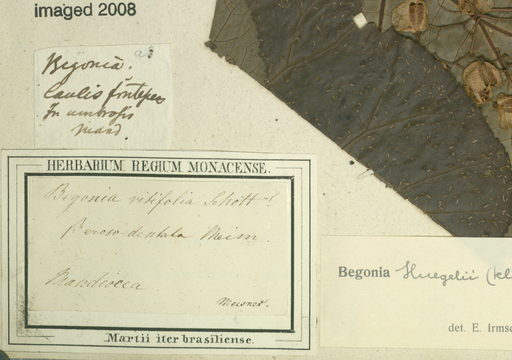 imaged 2008
Begonia.
Caulis frutesc
In umbrosis
Mand.
HERBARIUM REGIUM MONACENSE.
Begonia vitifolia Schott
dentata Meisn.
Mandiocca
Meisner.
Martii iter brasiliense.
Begonia Huegelii (Kl
det. E. Irmsc